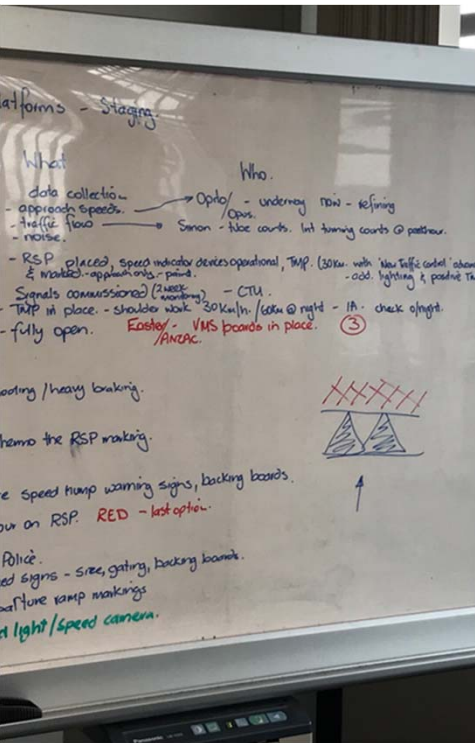 atforms - Staging.
What
Who.
data collection
- approach speeds. → Opto/Opus. - underway now - refining
- traffic flow → Simon - tube counts. Int turning counts @ peakhour.
- noise.
- RSP placed, speed indicator devices operational, TMP. (30km. with 'New Traffic Control' advan
& marked - approach only - paint. - add. lighting & positive
Signals commissioned (2 week monitoring) - CTU.
- TMP in place. - shoulder work 30km/h. /60km @ night - IA. check o/night.
- fully open. Easter/ANZAC. - VMS boards in place. 3
/heavy braking.
hermo the RSP marking.
e speed hump warning signs, backing boards.
our on RSP. RED - last option.
Police.
ed signs - size, gating, backing boards.
parture ramp markings
d light/speed camera.
Panasonic